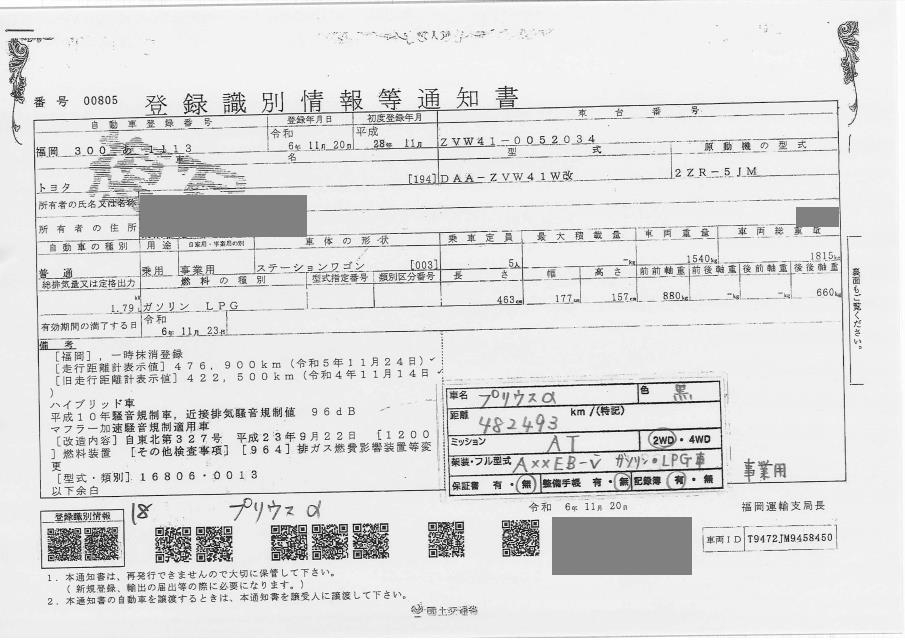 番号 00805 登録識別情報等通知書
自動車登録番号 登録年月日 初度登録年月 車台番号
福岡 300 あ 1113 令和 6年 11月 20日 平成 28年 11月 ZVW41-0052034
車名 型式 原動機の型式
トヨタ [194] DAA-ZVW41W改 2ZR-5JM
所有者の氏名又は名称
所有者の住所
自動車の種別 用途 自家用・事業用の別 車体の形状 乗車定員 最大積載量 車両重量 車両総重量
普通 乗用 事業用 ステーションワゴン [003] 5人 -kg 1540kg 1815kg
総排気量又は定格出力 燃料の種別 型式指定番号 類別区分番号 長さ 幅 高さ 前前軸重 前後軸重 後前軸重 後後軸重
kW
1.79L ガソリン LPG 463cm 177cm 157cm 880kg -kg -kg 660kg
有効期間の満了する日 令和 6年 11月 23日
裏面もご覧ください。
備考
[福岡],一時抹消登録
[走行距離計表示値] 476,900km (令和5年11月24日)
[旧走行距離計表示値] 422,500km (令和4年11月14日
)
ハイブリッド車
平成10年騒音規制車,近接排気騒音規制値 96dB
マフラー加速騒音規制適用車
[改造内容] 自東北第327号 平成23年9月22日 [1200
] 燃料装置 [その他検査事項] [964] 排ガス燃費影響装置等変
更
[型式・類別] 16806・0013
以下余白
車名 プリウスα 色 黒
距離 482493 km /(特記)
ミッション AT 2WD・4WD
架装・フル型式 AxxEB-V ガソリン・LPG車
保証書 有・無 整備手帳 有・無 記録簿 有・無
事業用
令和 6年 11月 20日 福岡運輸支局長
登録識別情報 18 プリウスα
車両ID T9472JM9458450
1.本通知書は、再発行できませんので大切に保管して下さい。
(新規登録、輸出の届出等の際に必要になります。)
2.本通知書の自動車を譲渡するときは、本通知書を譲受人に譲渡して下さい。
国土交通省